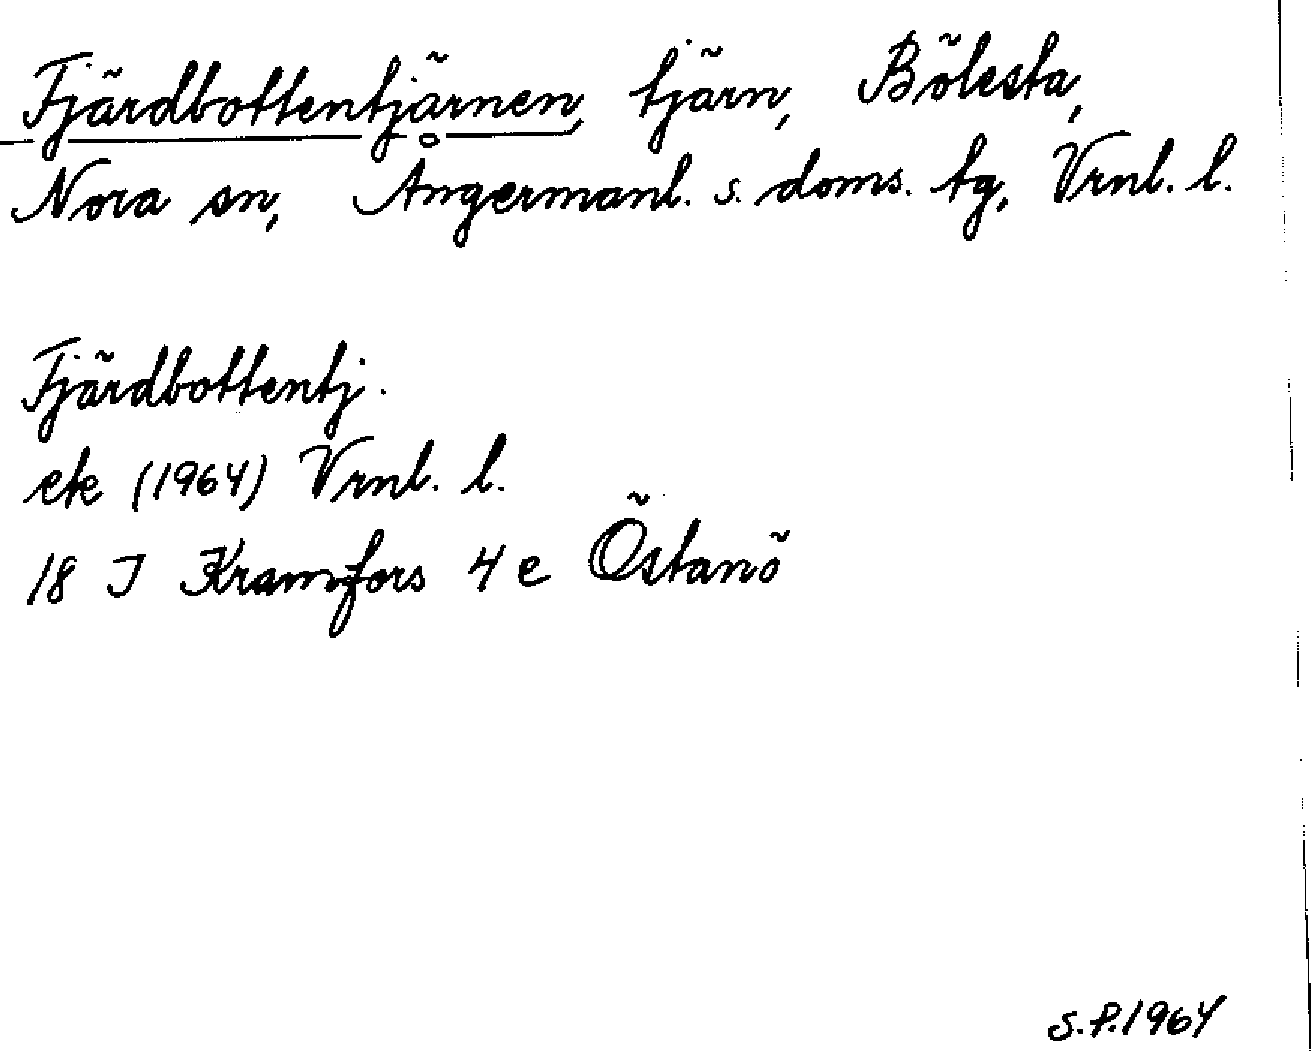 Fjärdbottentjärnen, tjärn, Bölesta,
Nora sn, Ångermanl. s. doms. tg, Vrnl. l.
Fjärdbottentj.
ek (1964) Vrnl. l.
18 I Kramfors 4 e Östanö
S.P.1964